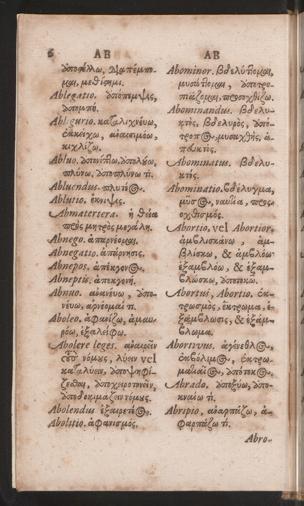 6 AB
ἀποστέλλω, διαπέμπο-
μαι, μεθίημι.
Ablegatio. ἀπόπεμψις,
ἀποπομπή.
Abligurio. καταλιχνεύω,
κιχλίζω.
Abluo. ἀπονίπτω, ἀπολούω,
πλύνω, ἀποπλύνω τι.
Abluendus. πλυτέος.
Ablutio. ἔκνιψις.
Abmatertera. ἡ θεία
πρὸς μητρὸς μεγάλη.
Abnego. ἀπαρνέομαι.
Abnegatio. ἀπάρνησις.
Abnepos. ἀπέκγονος.
Abneptis. ἀπεκγόνη.
Abnuo. ἀνανεύω, ἀπο-
νεύω, ἀρνέομαί τι.
Aboleo. ἀφανίζω, ἀμαυ-
ρόω, ἐξαλείφω.
Abolere leges. ἀναιρεῖν
τοὺς νόμους, λύειν vel
καταλύειν, ἀποψηφί-
ζεσθαι, ἀποχειροτονεῖν,
ἀποδοκιμάζειν νόμους.
Abolendus ἐξαιρετέος.
Abolitio. ἀφανισμός.
AB
Abominor. βδελύττομαι,
μυσάττομαι, ἀποτρο-
πιάζομαι, προσοχθίζω.
Abominandus. βδελυ-
κτὸς, βδελυρὸς, ἀπό-
τροπος, μυσαχθὴς, ἀ-
πευκτὸς.
Abominatus. βδελυ-
κτὸς.
Abominatio. βδέλυγμα,
μῦσος, ναυτία, προσ-
οχθισμός.
Abortio, vel Abortior,
ἀμβλισκάνω, ἀμ-
βλίσκω, & ἀμβλόω
ἐξαμβλόω, & ἐξαμ-
βλώσκω, ἀποτίκτω.
Abortus, Abortio. ἐκ-
τρωσμὸς, ἔκτρωμα. ἐ-
ξάμβλωσις, & ἐξάμ-
βλωμα.
Abortivus. ἐκτρω-
Abrado. ἀποξύω, ἀπο-
κναίω τι.
Abripio, ἀναρπάζω, ἀ-
φαρπάζω τι.
Abro-